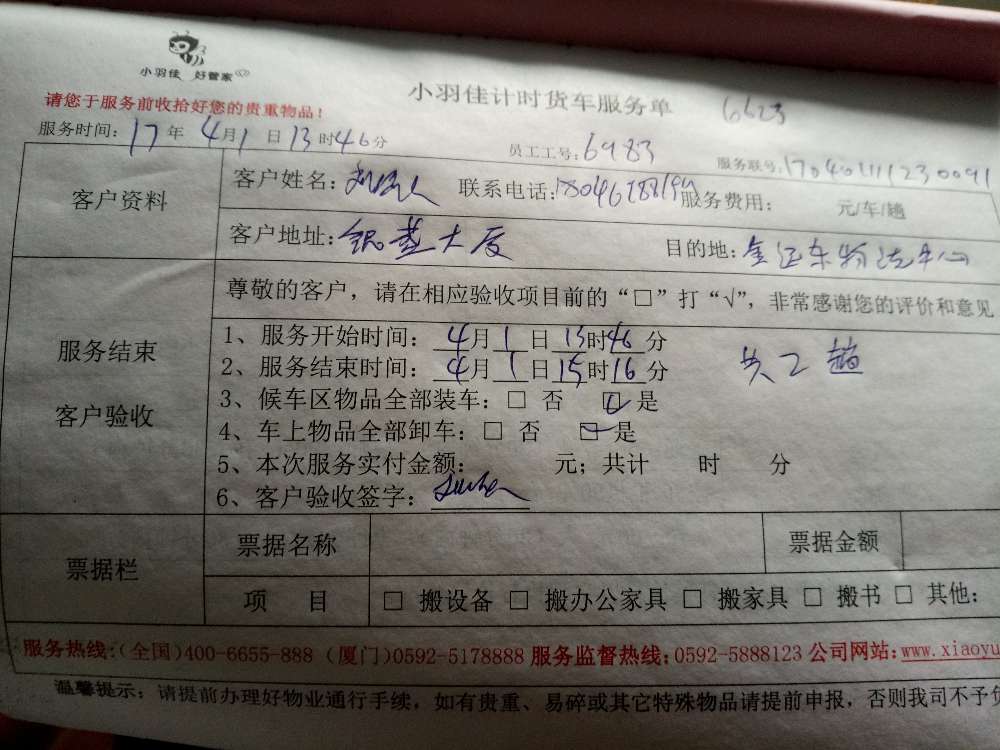 小羽佳 好管家
小羽佳计时货车服务单 6623
请您于服务前收拾好您的贵重物品！
服务时间：17年4月1日13时46分 员工工号：6983 服务联号：170401111230091
客户资料
客户姓名： 联系电话： 服务费用： 元/车/趟
客户地址：银燕大厦 目的地：金证东物流中心
尊敬的客户，请在相应验收项目前的“□”打“√”，非常感谢您的评价和意见
服务结束
客户验收
1、服务开始时间：4月1日13时46分 共2趟
2、服务结束时间：4月1日15时16分
3、候车区物品全部装车：□ 否 ☑ 是
4、车上物品全部卸车：□ 否 ☑ 是
5、本次服务实付金额： 元；共计 时 分
6、客户验收签字：
票据栏
票据名称 票据金额
项 目 □ 搬设备 □ 搬办公家具 □ 搬家具 □ 搬书 □ 其他：
服务热线：（全国）400-6655-888（厦门）0592-5178888 服务监督热线：0592-5888123 公司网站：www.xiaoyu
温馨提示：请提前办理好物业通行手续，如有贵重、易碎或其它特殊物品请提前申报，否则我司不予